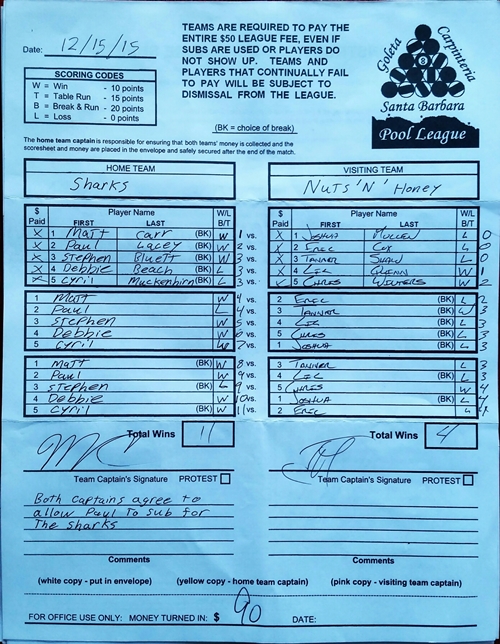 Date: 12/15/15
TEAMS ARE REQUIRED TO PAY THE
ENTIRE $50 LEAGUE FEE, EVEN IF
SUBS ARE USED OR PLAYERS DO
NOT SHOW UP. TEAMS AND
PLAYERS THAT CONTINUALLY FAIL
TO PAY WILL BE SUBJECT TO
DISMISSAL FROM THE LEAGUE.
SCORING CODES
W = Win - 10 points
T = Table Run - 15 points
B = Break & Run - 20 points
L = Loss - 0 points
(BK = choice of break)
Goleta
Carpinteria
8
Santa Barbara
Pool League
The home team captain is responsible for ensuring that both teams' money is collected and the
scoresheet and money are placed in the envelope and safely secured after the end of the match.
HOME TEAM
Sharks
VISITING TEAM
NUTS 'N' Honey
$ Paid Player Name FIRST LAST W/L B/T
X 1 Matt Carr (BK) W 1 vs.
X 2 Paul Lacey (BK) W 2 vs.
X 3 Stephen Bluett (BK) W 3 vs.
X 4 Debbie Beach (BK) L 3 vs.
X 5 Cyril Muckenhirn (BK) L 3 vs.
1 Matt W 4 vs.
2 Paul L 4 vs.
3 Stephen W 5 vs.
4 Debbie W 6 vs.
5 Cyril W 7 vs.
1 Matt (BK) W 8 vs.
2 Paul W 9 vs.
3 Stephen (BK) L 9 vs.
4 Debbie W 10 vs.
5 Cyril (BK) W 11 vs.
$ Paid Player Name FIRST LAST W/L B/T
X 1 Joshua Mullen L 0
X 2 Eric Cox L 0
X 3 Tanner Shaw L 0
X 4 Glenn W 1
X 5 Chris Winters W 2
2 Eric (BK) L 2
3 Tanner (BK) W 3
4 (BK) L 3
5 Chris (BK) L 3
1 Joshua (BK) L 3
3 Tanner L 3
4 (BK) L 3
5 Chris W 4
1 Joshua (BK) L 4
2 Eric L 4
Total Wins 11
Total Wins 4
Team Captain's Signature PROTEST
Team Captain's Signature PROTEST
Both Captains agree to
allow Paul To sub for
The sharks
Comments
Comments
(white copy - put in envelope) (yellow copy - home team captain) (pink copy - visiting team captain)
FOR OFFICE USE ONLY: MONEY TURNED IN: $ 90 DATE: